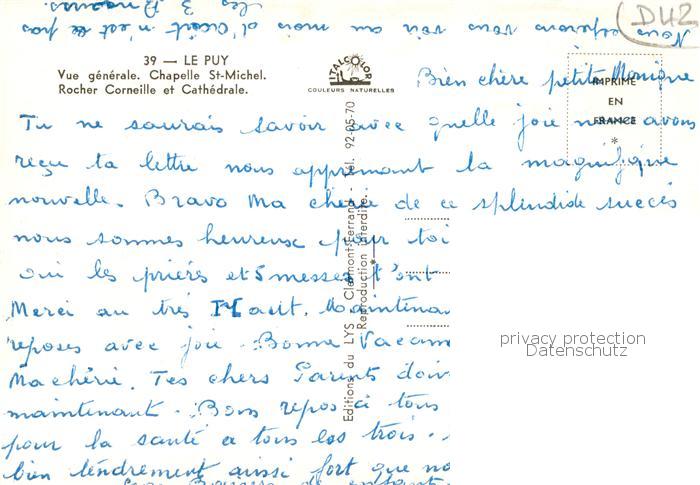 Nous espérons vous voir au mois d'Août n'est ce pas
les 3
D42
39 — LE PUY
Vue générale. Chapelle St-Michel.
Rocher Corneille et Cathédrale.
ITALCOLOR
COULEURS NATURELLES
IMPRIMÉ
EN
FRANCE
*
Bien chère petite Monique
Tu ne saurais savoir avec quelle joie nous avons
reçu ta lettre nous apprenant la magnifique
nouvelle. Bravo Ma chère de ce splendide succès
nous sommes heureux pour toi
oui les prières et 5 messes t'ont
Merci au très Haut. Maintenan
reposes avec joie. Bonne Vacan
Ma chérie. Tes chers Parents doiv
maintenant. Bon repos à tous
pour la santé a tous les trois.
bien tendrement aussi fort que no
Editions du LYS - Clermont-Ferrand - Tél. 92-05-70
Reproduction interdite.
privacy protection
Datenschutz